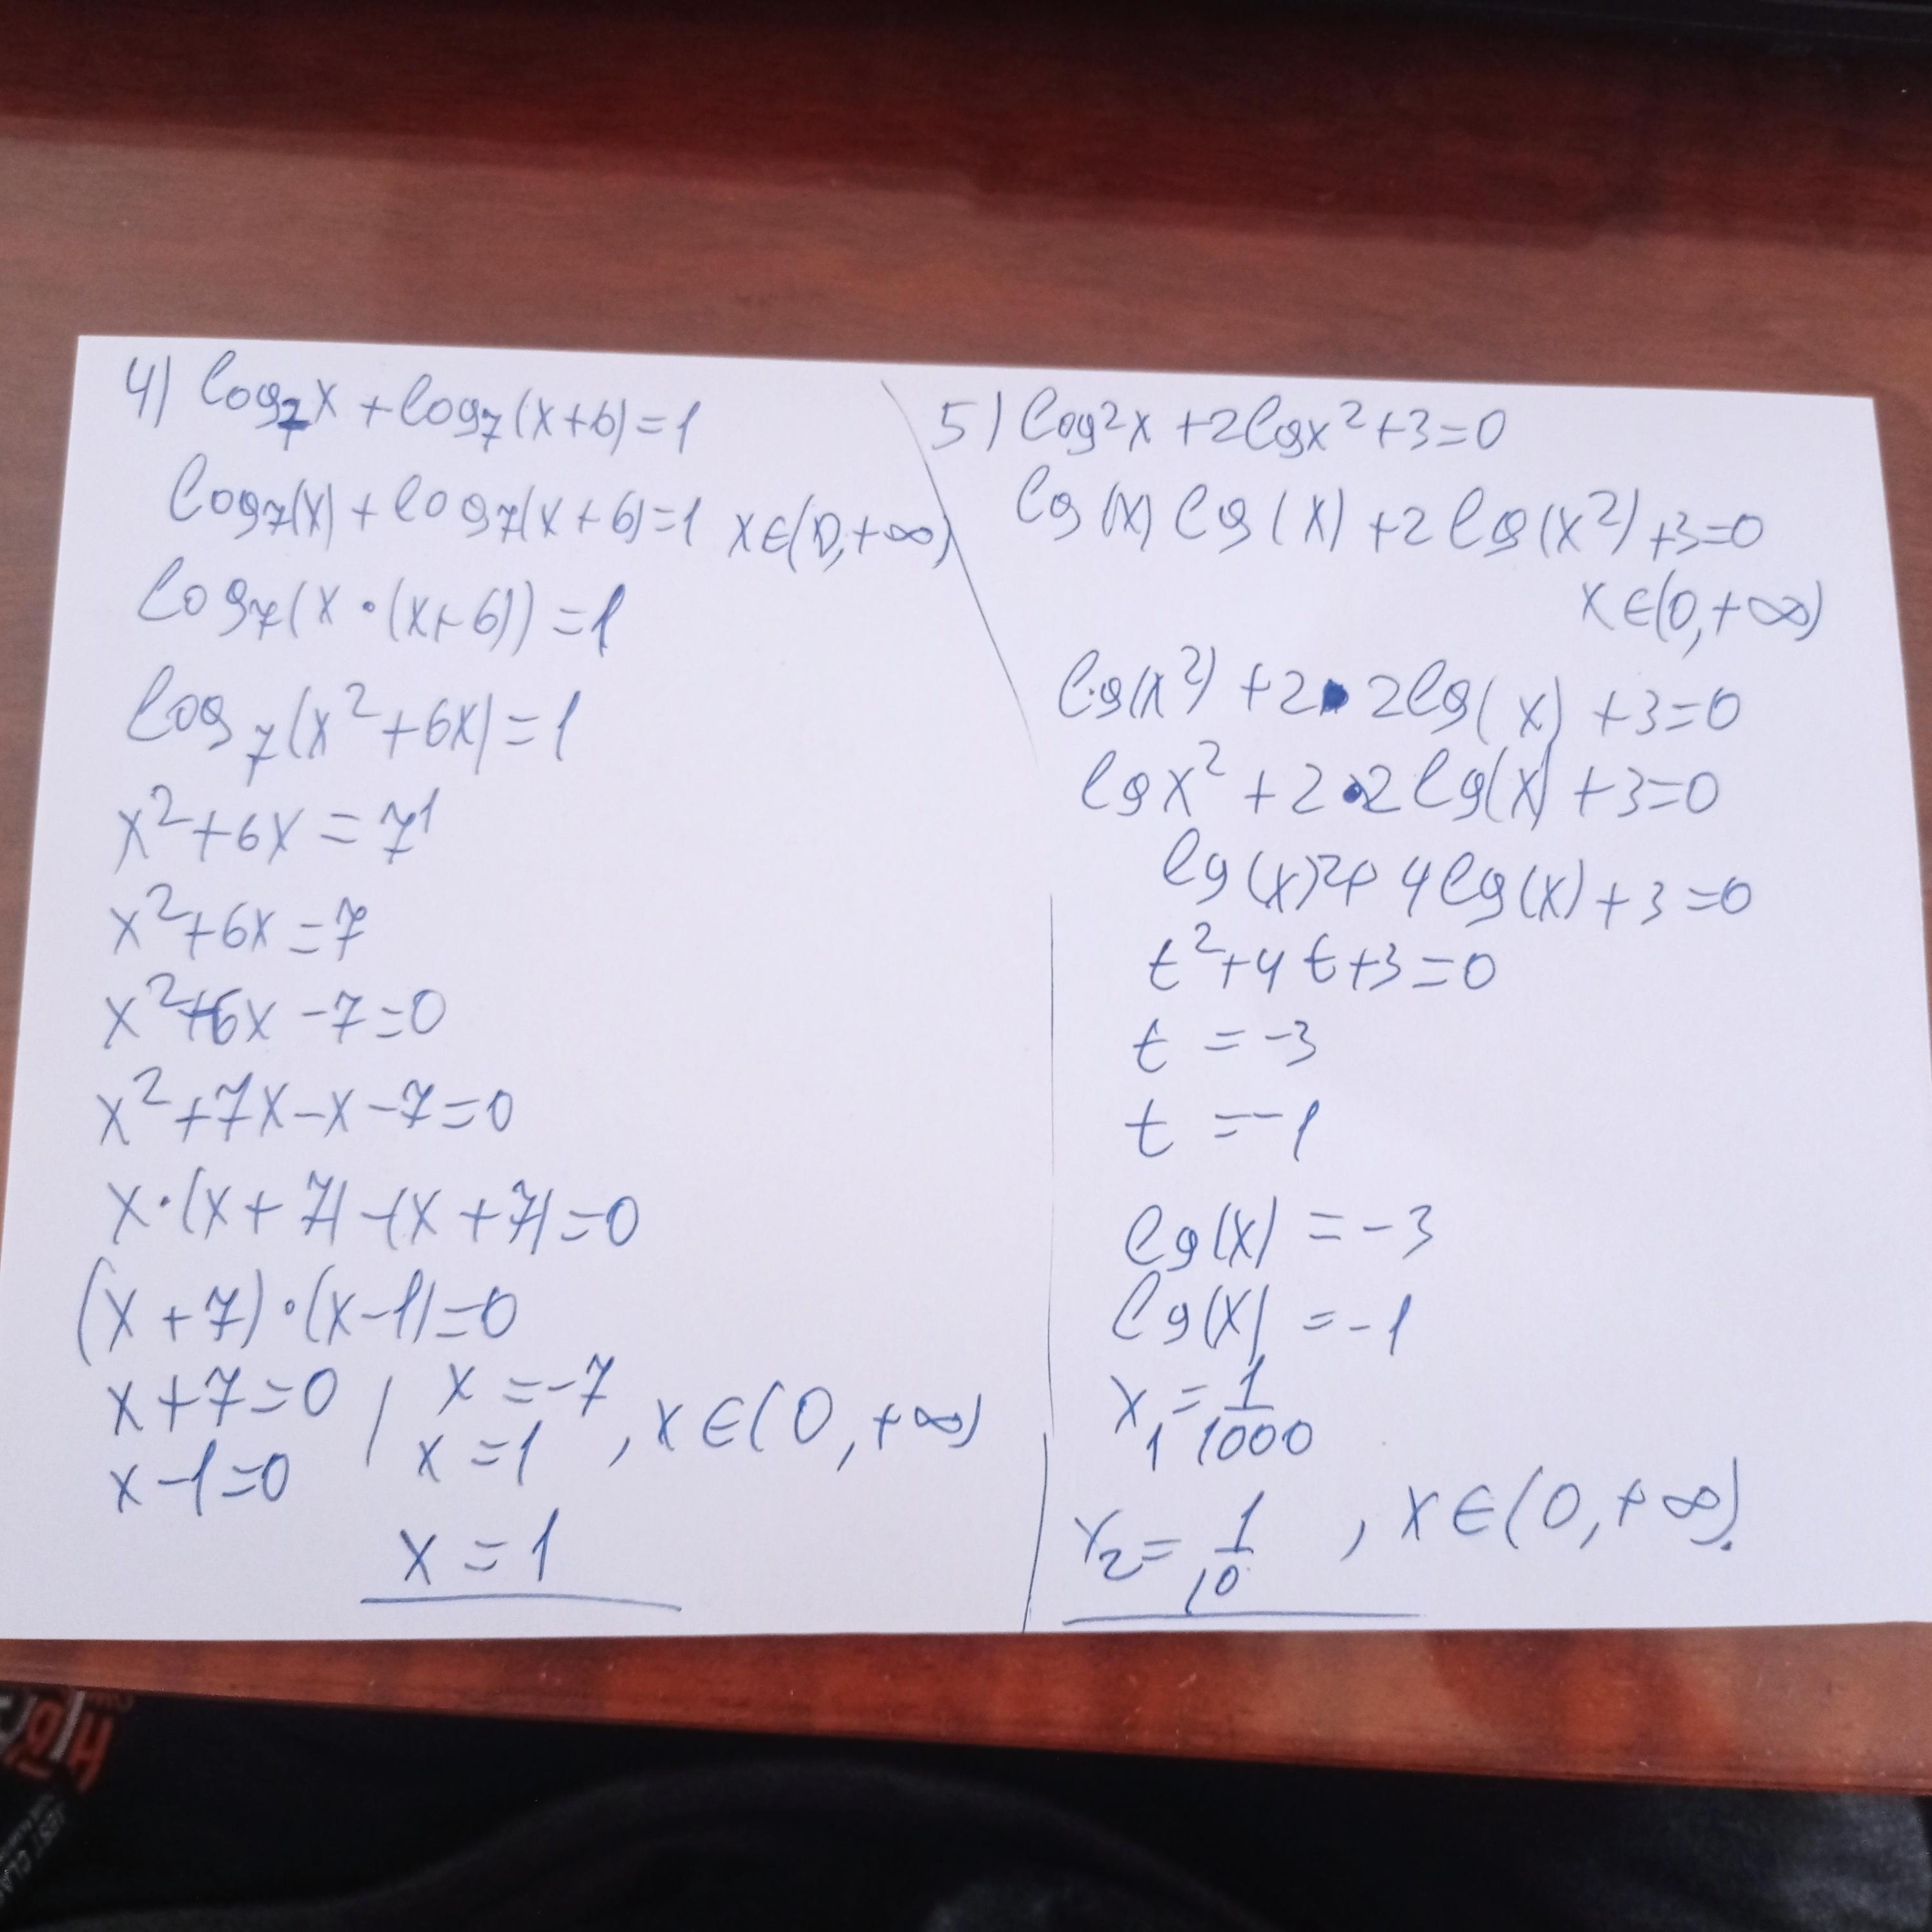 4) log₇x + log₇(x+6)=1
log₇(x) + log₇(x+6)=1 x∈(0,+∞)
log₇(x·(x+6))=1
log₇(x²+6x)=1
x²+6x=7¹
x²+6x=7
x²+6x-7=0
x²+7x-x-7=0
x·(x+7)-(x+7)=0
(x+7)·(x-1)=0
x+7=0 / x=-7
x-1=0 x=1 , x∈(0,+∞)
x=1
5) log²x+2lgx²+3=0
lg(x)lg(x)+2lg(x²)+3=0
x∈(0,+∞)
lg(x²)+2·2lg(x)+3=0
lgx²+2·2lg(x)+3=0
lg(x)2+4lg(x)+3=0
t²+4t+3=0
t=-3
t=-1
lg(x)=-3
lg(x)=-1
x₁=1/1000
x₂=1/10 , x∈(0,+∞).